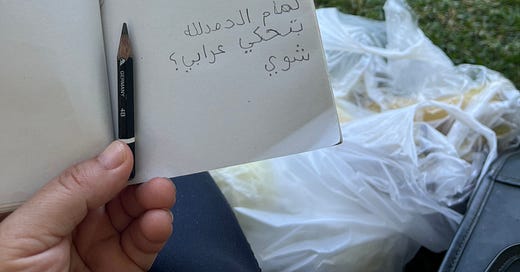 تمام الحمدلله
بتحكي عرابي؟
شوي
GERMANY 4B